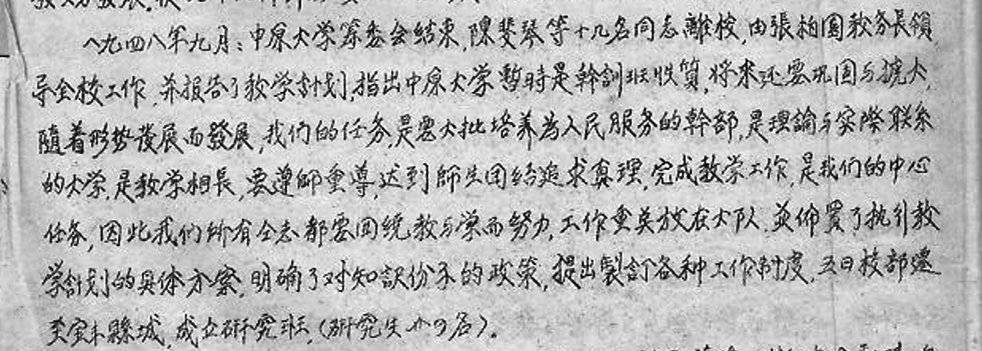 一九四八年九月：中原大学筹委会结束，陳斐琴等十几名同志離校，由張柏園教务長領
导全校工作，并报告了教学計划，指出中原大学暫時是幹訓班性質，将来还要巩固与擴大，
隨着形势發展而發展，我们的任务，是要大批培养為人民服务的幹部，是理論与实際联系
的大学，是教学相長，要遵師重導，达到師生团结追求真理，完成教学工作，是我们的中心
任务，因此我们所有仝志都要囲繞教与学而努力，工作重点放在大队，並佈置了执行教
学計划的具体方案，明确了对知識份子的政策，提出製訂各种工作制度，五日校部遷
至宝丰縣城，成立研究班，（研究生 名）。